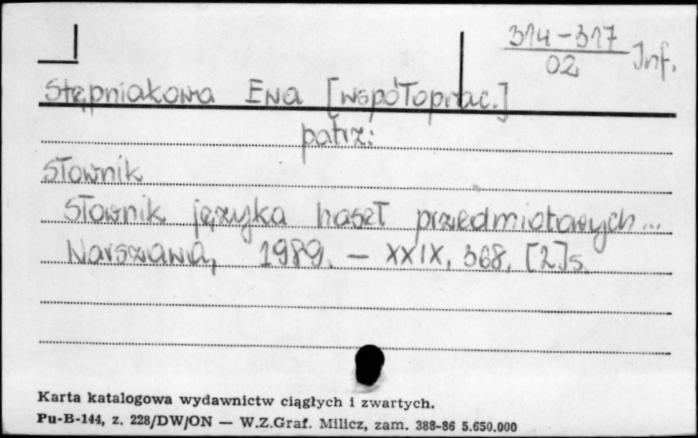 314-317
02 Inf.
Stępniakowa Ewa [współoprac.]
patrz:
Słownik
Słownik języka haseł przedmiotowych...
Warszawa, 1989. - XXIX, 368, [2]s.
Karta katalogowa wydawnictw ciągłych i zwartych.
Pu-B-144, z. 228/DW/ON — W.Z.Graf. Milicz, zam. 388-86 5.650.000